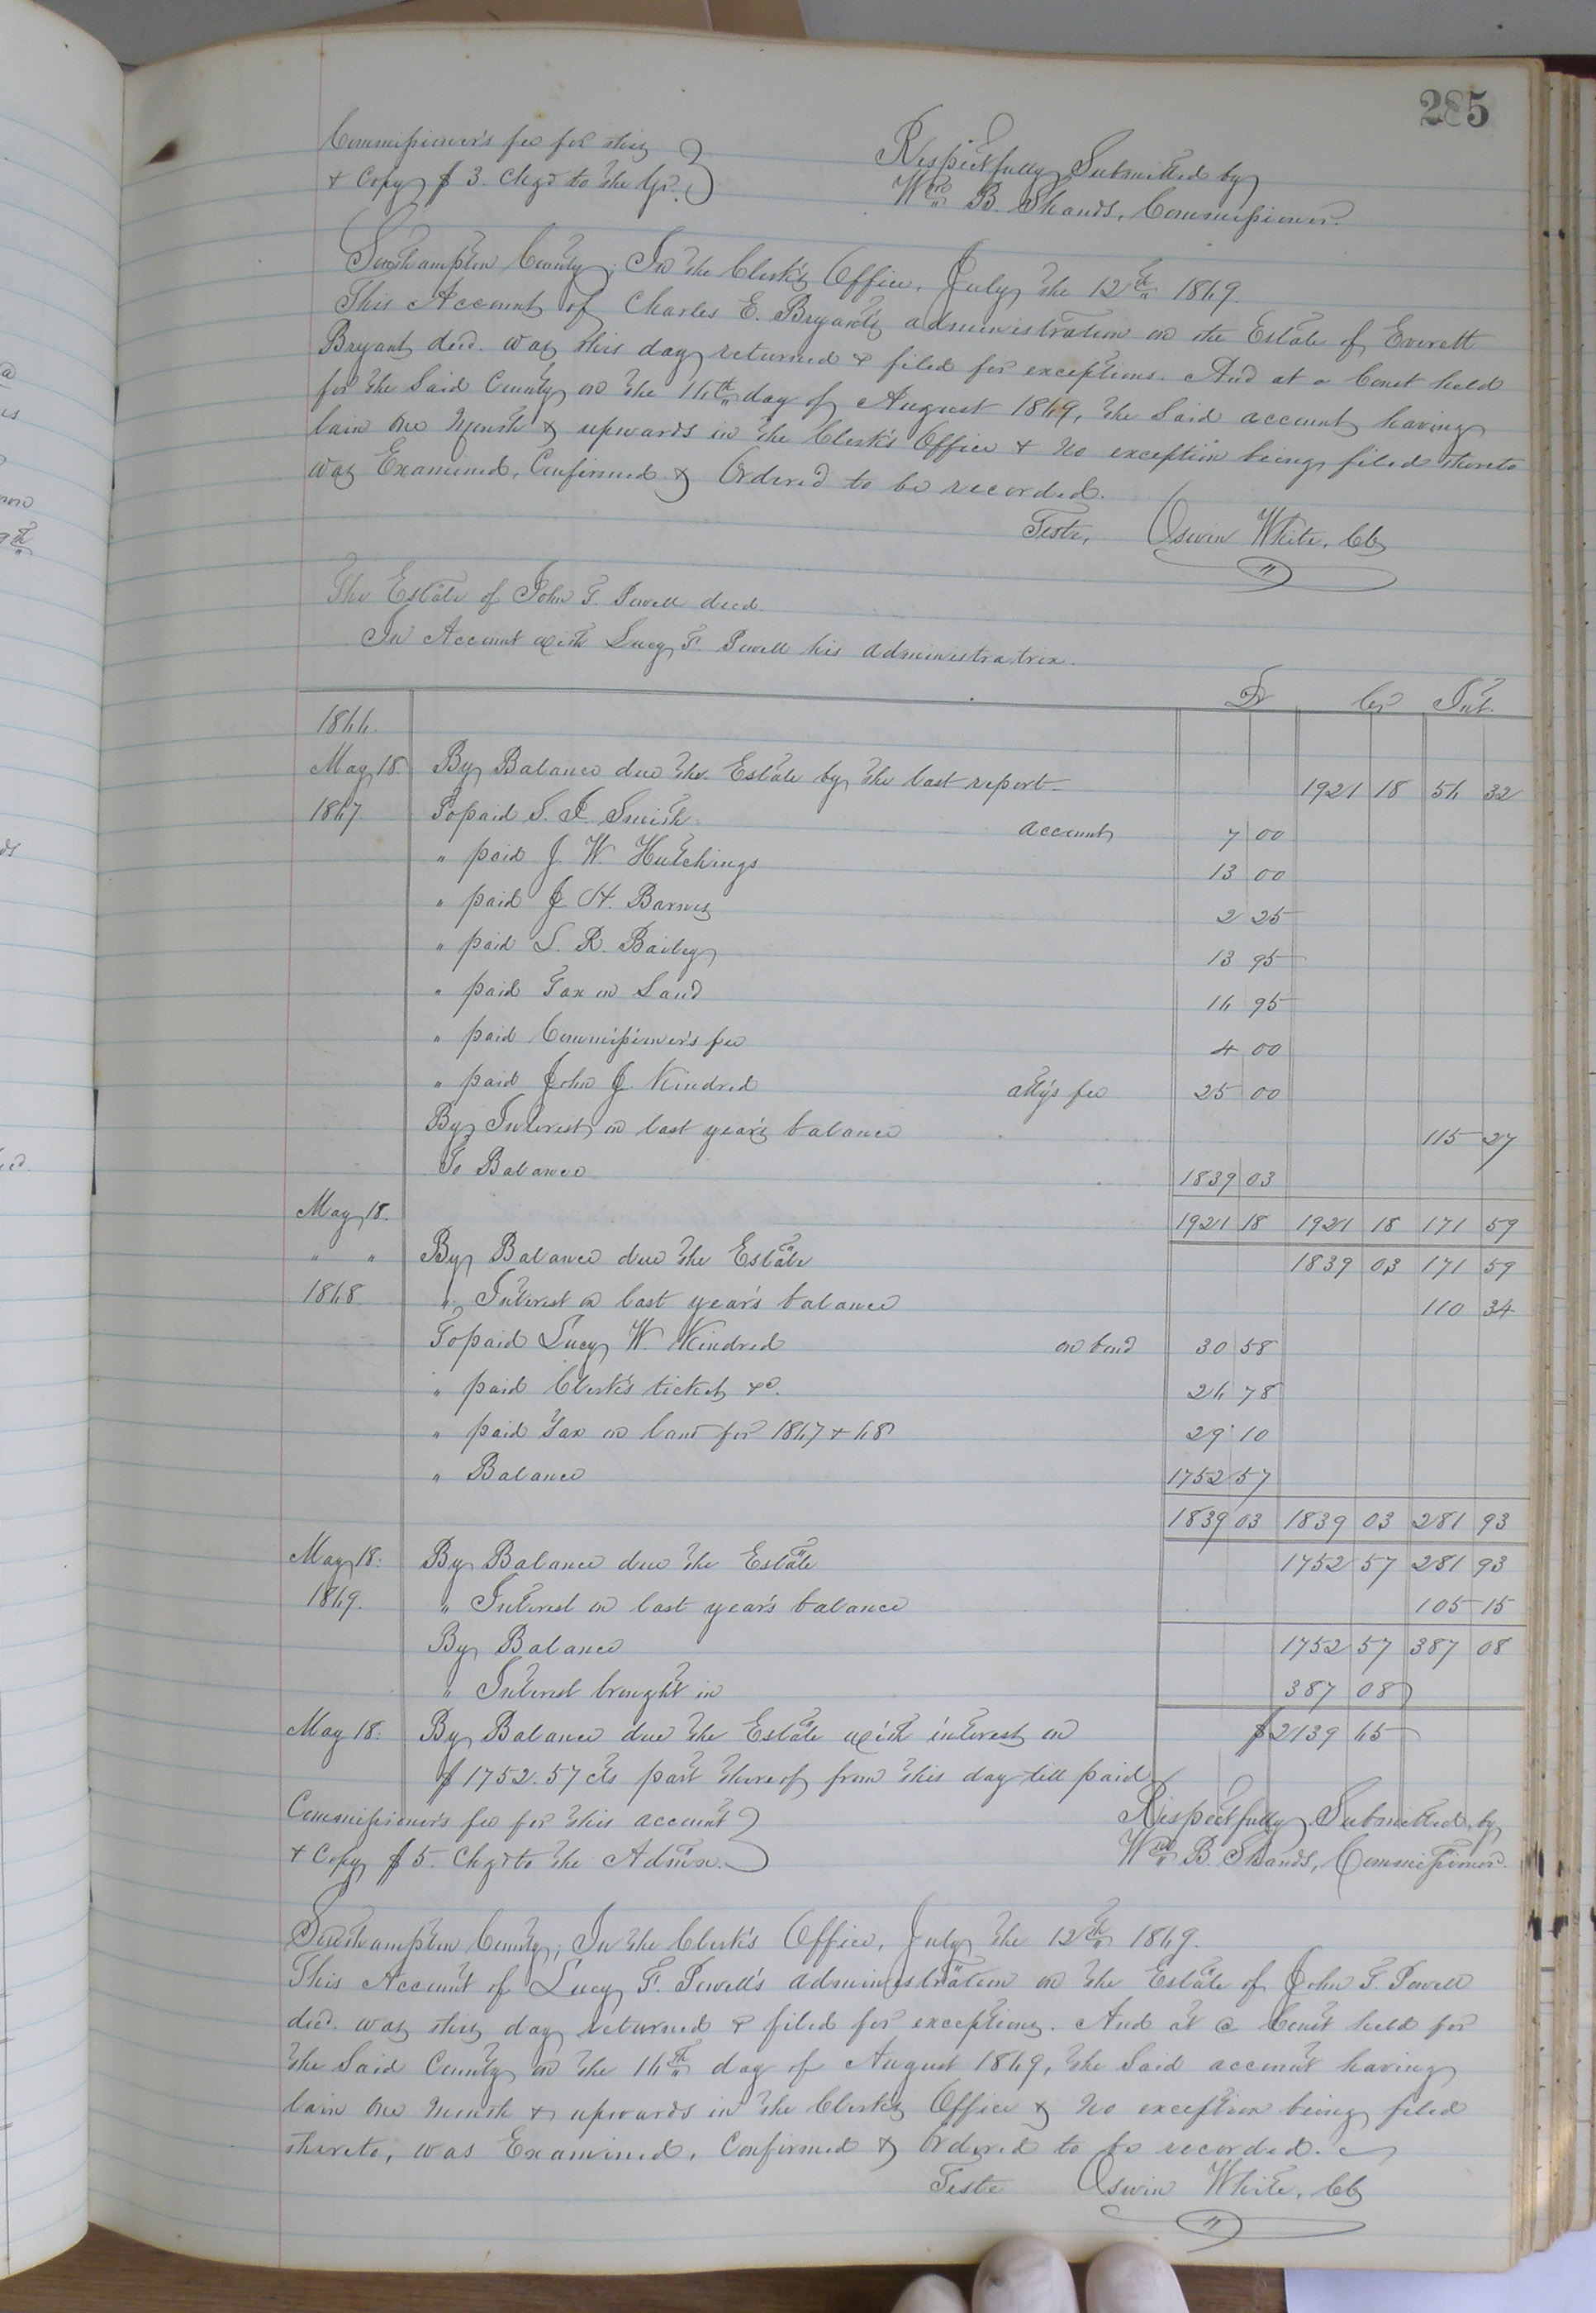 285
Commissioner's fee for this
& Copy $ 3. Chgd to the Gr.
Respectfully Submitted by
Wm B. Shands, Commissioner.
Southampton County; In the Clerk's Office, July the 12th 1869.
This Account of Charles E. Bryant's administration on the Estate of Everett
Bryant decd. was this day returned & filed for exceptions. And at a Court held
for the Said County on the 16th day of August 1869, the Said account having
lain one Month & upwards in the Clerk's Office & No exception being filed thereto
was Examined, Confirmed & Ordered to be recorded.
Teste, Oswin White, Clk
The Estate of John T. Powell decd.
In Account with Lucy F. Powell his administratrix.
Dr Cr Int.
1866.
May 18. By Balance due the Estate by the last report 1921 18 56 32
1867 To paid S. I. Smith account 7 00
" paid J. W. Hutchings 13 00
" paid J. H. Barnes 2 25
" paid S. R. Bailey 13 95
" paid Tax on Land 16 95
" paid Commissioner's fee 4 00
" paid John J. Kindred atty's fee 25 00
By Interest on last year's balance 115 27
To Balance 1839 03
May 18. 1921 18 1921 18 171 59
" " By Balance due the Estate 1839 03 171 59
1868 " Interest on last year's balance 110 34
To paid Lucy W. Kindred on bond 30 58
" paid Clerk's tickets &c. 26 78
" paid Tax on land for 1867 & 68 29 10
" Balance 1752 57
1839 03 1839 03 281 93
May 18. By Balance due the Estate 1752 57 281 93
1869. " Interest on last year's balance 105 15
By Balance 1752 57 387 08
" Interest brought in 387 08
May 18. By Balance due the Estate with interest on $2139 65
$ 1752.57 cts part thereof from this day till paid
Commissioner's fee for this account
& Copy $ 5. Chgd to the Admx.
Respectfully Submitted by
Wm B. Shands, Commissioner.
Southampton County; In the Clerk's Office, July the 12th 1869.
This Account of Lucy F. Powell's administration on the Estate of John T. Powell
decd. was this day returned & filed for exceptions. And at a Court held for
the Said County on the 16th day of August 1869, the Said account having
lain one Month & upwards in the Clerk's Office & No exception being filed
thereto, was Examined, Confirmed & Ordered to be recorded.
Teste Oswin White, Clk